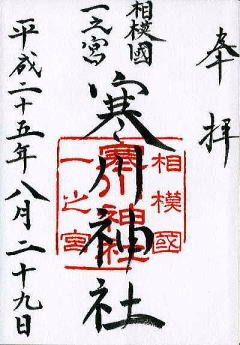 奉拝
相模國
一之宮
寒川神社
相模國
寒川神社
一之宮
平成二十五年八月二十九日